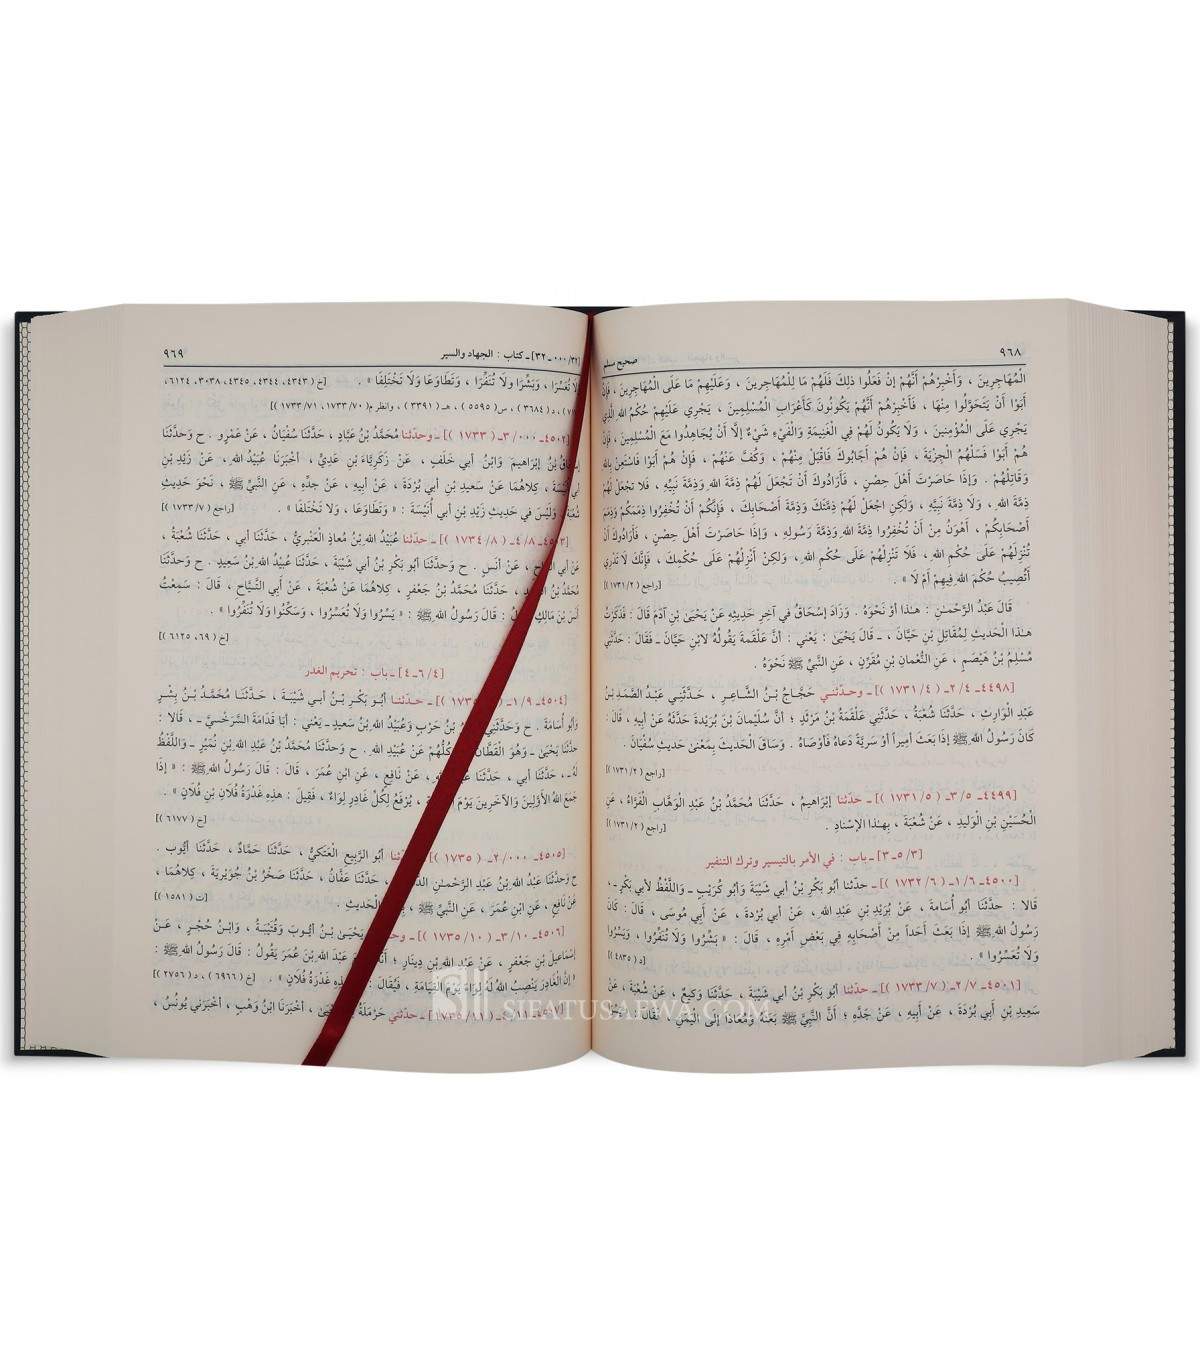 ٩٦٨
صحيح مسلم
الْمُهَاجِرِينَ ، وَأَخْبِرْهُمْ أَنَّهُمْ إِنْ فَعَلُوا ذٰلِكَ فَلَهُمْ مَا لِلْمُهَاجِرِينَ ، وَعَلَيْهِمْ مَا عَلَى الْمُهَاجِرِينَ ، فَإِنْ
أَبَوْا أَنْ يَتَحَوَّلُوا مِنْهَا ، فَأَخْبِرْهُمْ أَنَّهُمْ يَكُونُونَ كَأَعْرَابِ الْمُسْلِمِينَ ، يَجْرِي عَلَيْهِمْ حُكْمُ اللهِ الَّذِي
يَجْرِي عَلَى الْمُؤْمِنِينَ ، وَلَا يَكُونُ لَهُمْ فِي الْغَنِيمَةِ وَالْفَيْءِ شَيْءٌ إِلَّا أَنْ يُجَاهِدُوا مَعَ الْمُسْلِمِينَ ، فَإِنْ
هُمْ أَبَوْا فَسَلْهُمُ الْجِزْيَةَ ، فَإِنْ هُمْ أَجَابُوكَ فَاقْبَلْ مِنْهُمْ ، وَكُفَّ عَنْهُمْ ، فَإِنْ هُمْ أَبَوْا فَاسْتَعِنْ بِاللهِ
وَقَاتِلْهُمْ . وَإِذَا حَاصَرْتَ أَهْلَ حِصْنٍ ، فَأَرَادُوكَ أَنْ تَجْعَلَ لَهُمْ ذِمَّةَ اللهِ وَذِمَّةَ نَبِيِّهِ ، فَلَا تَجْعَلْ لَهُمْ
ذِمَّةَ اللهِ ، وَلَا ذِمَّةَ نَبِيِّهِ ، وَلَكِنِ اجْعَلْ لَهُمْ ذِمَّتَكَ وَذِمَّةَ أَصْحَابِكَ ، فَإِنَّكُمْ أَنْ تُخْفِرُوا ذِمَمَكُمْ وَذِمَمَ
أَصْحَابِكُمْ ، أَهْوَنُ مِنْ أَنْ تُخْفِرُوا ذِمَّةَ اللهِ وَذِمَّةَ رَسُولِهِ ، وَإِذَا حَاصَرْتَ أَهْلَ حِصْنٍ ، فَأَرَادُوكَ أَنْ
تُنْزِلَهُمْ عَلَىٰ حُكْمِ اللهِ ، فَلَا تُنْزِلْهُمْ عَلَى حُكْمِ اللهِ ، وَلٰكِنْ أَنْزِلْهُمْ عَلَى حُكْمِكَ ، فَإِنَّكَ لَا تَدْرِي
أَتُصِيبُ حُكْمَ اللهِ فِيهِمْ أَمْ لَا » . [راجع ١٧٣١/٢]
قَالَ عَبْدُ الرَّحْمٰنِ : هٰذَا أَوْ نَحْوَهُ . وَزَادَ إِسْحَاقُ فِي آخِرِ حَدِيثِهِ عَنْ يَحْيَىٰ بْنِ آدَمَ قَالَ : فَذَكَرْتُ
هٰذَا الْحَدِيثَ لِمُقَاتِلِ بْنِ حَيَّانَ ، ـ قَالَ يَحْيَىٰ : يَعْنِي : أَنَّ عَلْقَمَةَ يَقُولُهُ لِابْنِ حَيَّانَ ـ فَقَالَ : حَدَّثَنِي
مُسْلِمُ بْنُ هَيْصَمٍ ، عَنِ النُّعْمَانِ بْنِ مُقَرِّنٍ ، عَنِ النَّبِيِّ ﷺ نَحْوَهُ .
[٤٤٩٨ـ ٤/٢ـ ( ١٧٣١/٤ )] ـ وحدّثني حَجَّاجُ بْنُ الشَّاعِرِ ، حَدَّثَنِي عَبْدُ الصَّمَدِ بْنُ
عَبْدِ الْوَارِثِ ، حَدَّثَنَا شُعْبَةُ ، حَدَّثَنِي عَلْقَمَةُ بْنُ مَرْثَدٍ ؛ أَنَّ سُلَيْمَانَ بْنَ بُرَيْدَةَ حَدَّثَهُ عَنْ أَبِيهِ ، قَالَ :
كَانَ رَسُولُ اللهِ ﷺ إِذَا بَعَثَ أَمِيراً أَوْ سَرِيَّةً دَعَاهُ فَأَوْصَاهُ . وَسَاقَ الْحَدِيثَ بِمَعْنَىٰ حَدِيثِ سُفْيَانَ .
[راجع ١٧٣١/٢]
[٤٤٩٩ـ ٥/٣ـ ( ١٧٣١/٥ )] ـ حدّثنا إِبْرَاهِيمُ ، حَدَّثَنَا مُحَمَّدُ بْنُ عَبْدِ الْوَهَّابِ الْفَرَّاءُ ، عَنِ
الْحُسَيْنِ بْنِ الْوَلِيدِ ، عَنْ شُعْبَةَ ، بِهٰذَا الْإِسْنَادِ . [راجع ١٧٣١/٢]
[٥/٣ـ ٣] ـ باب : في الأمر بالتيسير وترك التنفير
[٤٥٠٠ـ ١/٦ـ ( ١٧٣٢/٦ )] ـ حدّثنا أَبُو بَكْرِ بْنُ أَبِي شَيْبَةَ وَأَبُو كُرَيْبٍ ـ وَاللَّفْظُ لِأَبِي بَكْرٍ ـ ،
قَالَا : حَدَّثَنَا أَبُو أُسَامَةَ ، عَنْ بُرَيْدِ بْنِ عَبْدِ اللهِ ، عَنْ أَبِي بُرْدَةَ ، عَنْ أَبِي مُوسَى ، قَالَ : كَانَ
رَسُولُ اللهِ ﷺ إِذَا بَعَثَ أَحَداً مِنْ أَصْحَابِهِ فِي بَعْضِ أَمْرِهِ ، قَالَ : « بَشِّرُوا وَلَا تُنَفِّرُوا ، وَيَسِّرُوا
وَلَا تُعَسِّرُوا » . [د ( ٤٨٣٥ )]
[٤٥٠١ـ ٢/٧ـ ( ١٧٣٣/٧ )] ـ حدّثنا أَبُو بَكْرِ بْنُ أَبِي شَيْبَةَ ، حَدَّثَنَا وَكِيعٌ ، عَنْ شُعْبَةَ ، عَنْ
سَعِيدِ بْنِ أَبِي بُرْدَةَ ، عَنْ أَبِيهِ ، عَنْ جَدِّهِ ؛ أَنَّ النَّبِيَّ ﷺ بَعَثَهُ وَمُعَاذاً إِلَى الْيَمَنِ ، فَقَالَ :
[٣٢/٠٠٠ـ ٣٢] ـ كتاب : الجهاد والسير
٩٦٩
وَلَا تُعَسِّرَا ، وَبَشِّرَا وَلَا تُنَفِّرَا ، وَتَطَاوَعَا وَلَا تَخْتَلِفَا » . [خ ( ٤٣٤٣، ٤٣٤٤، ٤٣٤٥، ٣٠٣٨، ٦١٢٤،
د ( ٣٦٨٤ ) ، س ( ٥٥٩٥ ) ، هـ ( ٣٣٩١ ) ، وانظر م( ١٧٣٣/٧٠، ١٧٣٣/٧١ )]
[٤٥٠٢ـ ٣/٠٠٠ـ ( ١٧٣٣ )] ـ وحدّثنا مُحَمَّدُ بْنُ عَبَّادٍ ، حَدَّثَنَا سُفْيَانُ ، عَنْ عَمْرٍو . ح وَحَدَّثَنَا
إِسْحَاقُ بْنُ إِبْرَاهِيمَ وَابْنُ أَبِي خَلَفٍ ، عَنْ زَكَرِيَّاءَ بْنِ عَدِيٍّ ، أَخْبَرَنَا عُبَيْدُ اللهِ ، عَنْ زَيْدِ بْنِ
أَبِي أُنَيْسَةَ ، كِلَاهُمَا عَنْ سَعِيدِ بْنِ أَبِي بُرْدَةَ ، عَنْ أَبِيهِ ، عَنْ جَدِّهِ ، عَنِ النَّبِيِّ ﷺ ، نَحْوَ حَدِيثِ
شُعْبَةَ ، وَلَيْسَ فِي حَدِيثِ زَيْدِ بْنِ أَبِي أُنَيْسَةَ : « وَتَطَاوَعَا ، وَلَا تَخْتَلِفَا » . [راجع ١٧٣٣/٧]
[٤٥٠٣ـ ٤/٨ـ ( ١٧٣٤/٨ )] ـ حدّثنا عُبَيْدُ اللهِ بْنُ مُعَاذٍ الْعَنْبَرِيُّ ، حَدَّثَنَا أَبِي ، حَدَّثَنَا شُعْبَةُ ،
عَنْ أَبِي ، عَنْ أَنَسٍ . ح وَحَدَّثَنَا أَبُو بَكْرِ بْنُ أَبِي شَيْبَةَ ، حَدَّثَنَا عُبَيْدُ اللهِ بْنُ سَعِيدٍ . ح وَحَدَّثَنَا
مُحَمَّدُ بْنُ ، حَدَّثَنَا مُحَمَّدُ بْنُ جَعْفَرٍ ، كِلَاهُمَا عَنْ شُعْبَةَ ، عَنْ أَبِي التَّيَّاحِ ، قَالَ : سَمِعْتُ
أَنَسَ بْنَ مَالِكٍ : قَالَ رَسُولُ اللهِ ﷺ : « يَسِّرُوا وَلَا تُعَسِّرُوا ، وَسَكِّنُوا وَلَا تُنَفِّرُوا » .
[خ ( ٦٩، ٦١٢٥ )]
[٦/٤ـ ٤] ـ باب : تحريم الغدر
[٤٥٠٤ـ ١/٩ـ ( ١٧٣٥ )] ـ حدّثنا أَبُو بَكْرِ بْنُ أَبِي شَيْبَةَ ، حَدَّثَنَا مُحَمَّدُ بْنُ بِشْرٍ
وَأَبُو أُسَامَةَ . ح وَحَدَّثَنِي بْنُ حَرْبٍ وَعُبَيْدُ اللهِ بْنُ سَعِيدٍ ـ يَعْنِي : أَبَا قُدَامَةَ السَّرَخْسِيَّ ـ ، قَالَا :
حَدَّثَنَا يَحْيَىٰ ـ وَهُوَ الْقَطَّانُ كُلُّهُمْ عَنْ عُبَيْدِ اللهِ . ح وَحَدَّثَنَا مُحَمَّدُ بْنُ عَبْدِ اللهِ بْنِ نُمَيْرٍ ـ وَاللَّفْظُ
لَهُ ـ ، حَدَّثَنَا أَبِي ، حَدَّثَنَا ، عَنْ نَافِعٍ ، عَنِ ابْنِ عُمَرَ ، قَالَ : قَالَ رَسُولُ اللهِ ﷺ : « إِذَا
جَمَعَ اللهُ الْأَوَّلِينَ وَالْآخِرِينَ يَوْمَ ، يُرْفَعُ لِكُلِّ غَادِرٍ لِوَاءٌ ، فَقِيلَ : هٰذِهِ غَدْرَةُ فُلَانِ بْنِ فُلَانٍ » .
[خ ( ٦١٧٧ )]
[٤٥٠٥ـ ٢/٠٠٠ـ ( ١٧٣٥ )] أَبُو الرَّبِيعِ الْعَتَكِيُّ ، حَدَّثَنَا حَمَّادٌ ، حَدَّثَنَا أَيُّوبُ .
ح وَحَدَّثَنَا عَبْدُ اللهِ بْنُ عَبْدِ الرَّحْمٰنِ ، حَدَّثَنَا عَفَّانُ ، حَدَّثَنَا صَخْرُ بْنُ جُوَيْرِيَةَ ، كِلَاهُمَا ،
عَنْ نَافِعٍ ، عَنِ ابْنِ عُمَرَ ، عَنِ النَّبِيِّ ﷺ ، الْحَدِيثِ . [ت ( ١٥٨١ )]
[٤٥٠٦ـ ٣/١٠ـ ( ١٧٣٥/١٠ )] ـ يَحْيَىٰ بْنُ أَيُّوبَ وَقُتَيْبَةُ ، وَابْنُ حُجْرٍ ، عَنْ
إِسْمَاعِيلَ بْنِ جَعْفَرٍ ، عَنْ عَبْدِ اللهِ بْنِ دِينَارٍ ؛ عَبْدَ اللهِ بْنَ عُمَرَ يَقُولُ : قَالَ رَسُولُ اللهِ ﷺ :
« إِنَّ الْغَادِرَ يَنْصِبُ اللهُ لَهُ لِوَاءً يَوْمَ الْقِيَامَةِ ، فَيُقَالُ : هٰذِهِ غَدْرَةُ فُلَانٍ » . [خ ( ٦٩٦٦ ) ، د ( ٢٧٥٦ )]
[٤٥٠٧ـ ٤/١١ـ ( ١٧٣٥/١١ )] ـ حدّثني حَرْمَلَةُ ، أَخْبَرَنَا ابْنُ وَهْبٍ ، أَخْبَرَنِي يُونُسُ ،
SIFATUSAFWA.COM